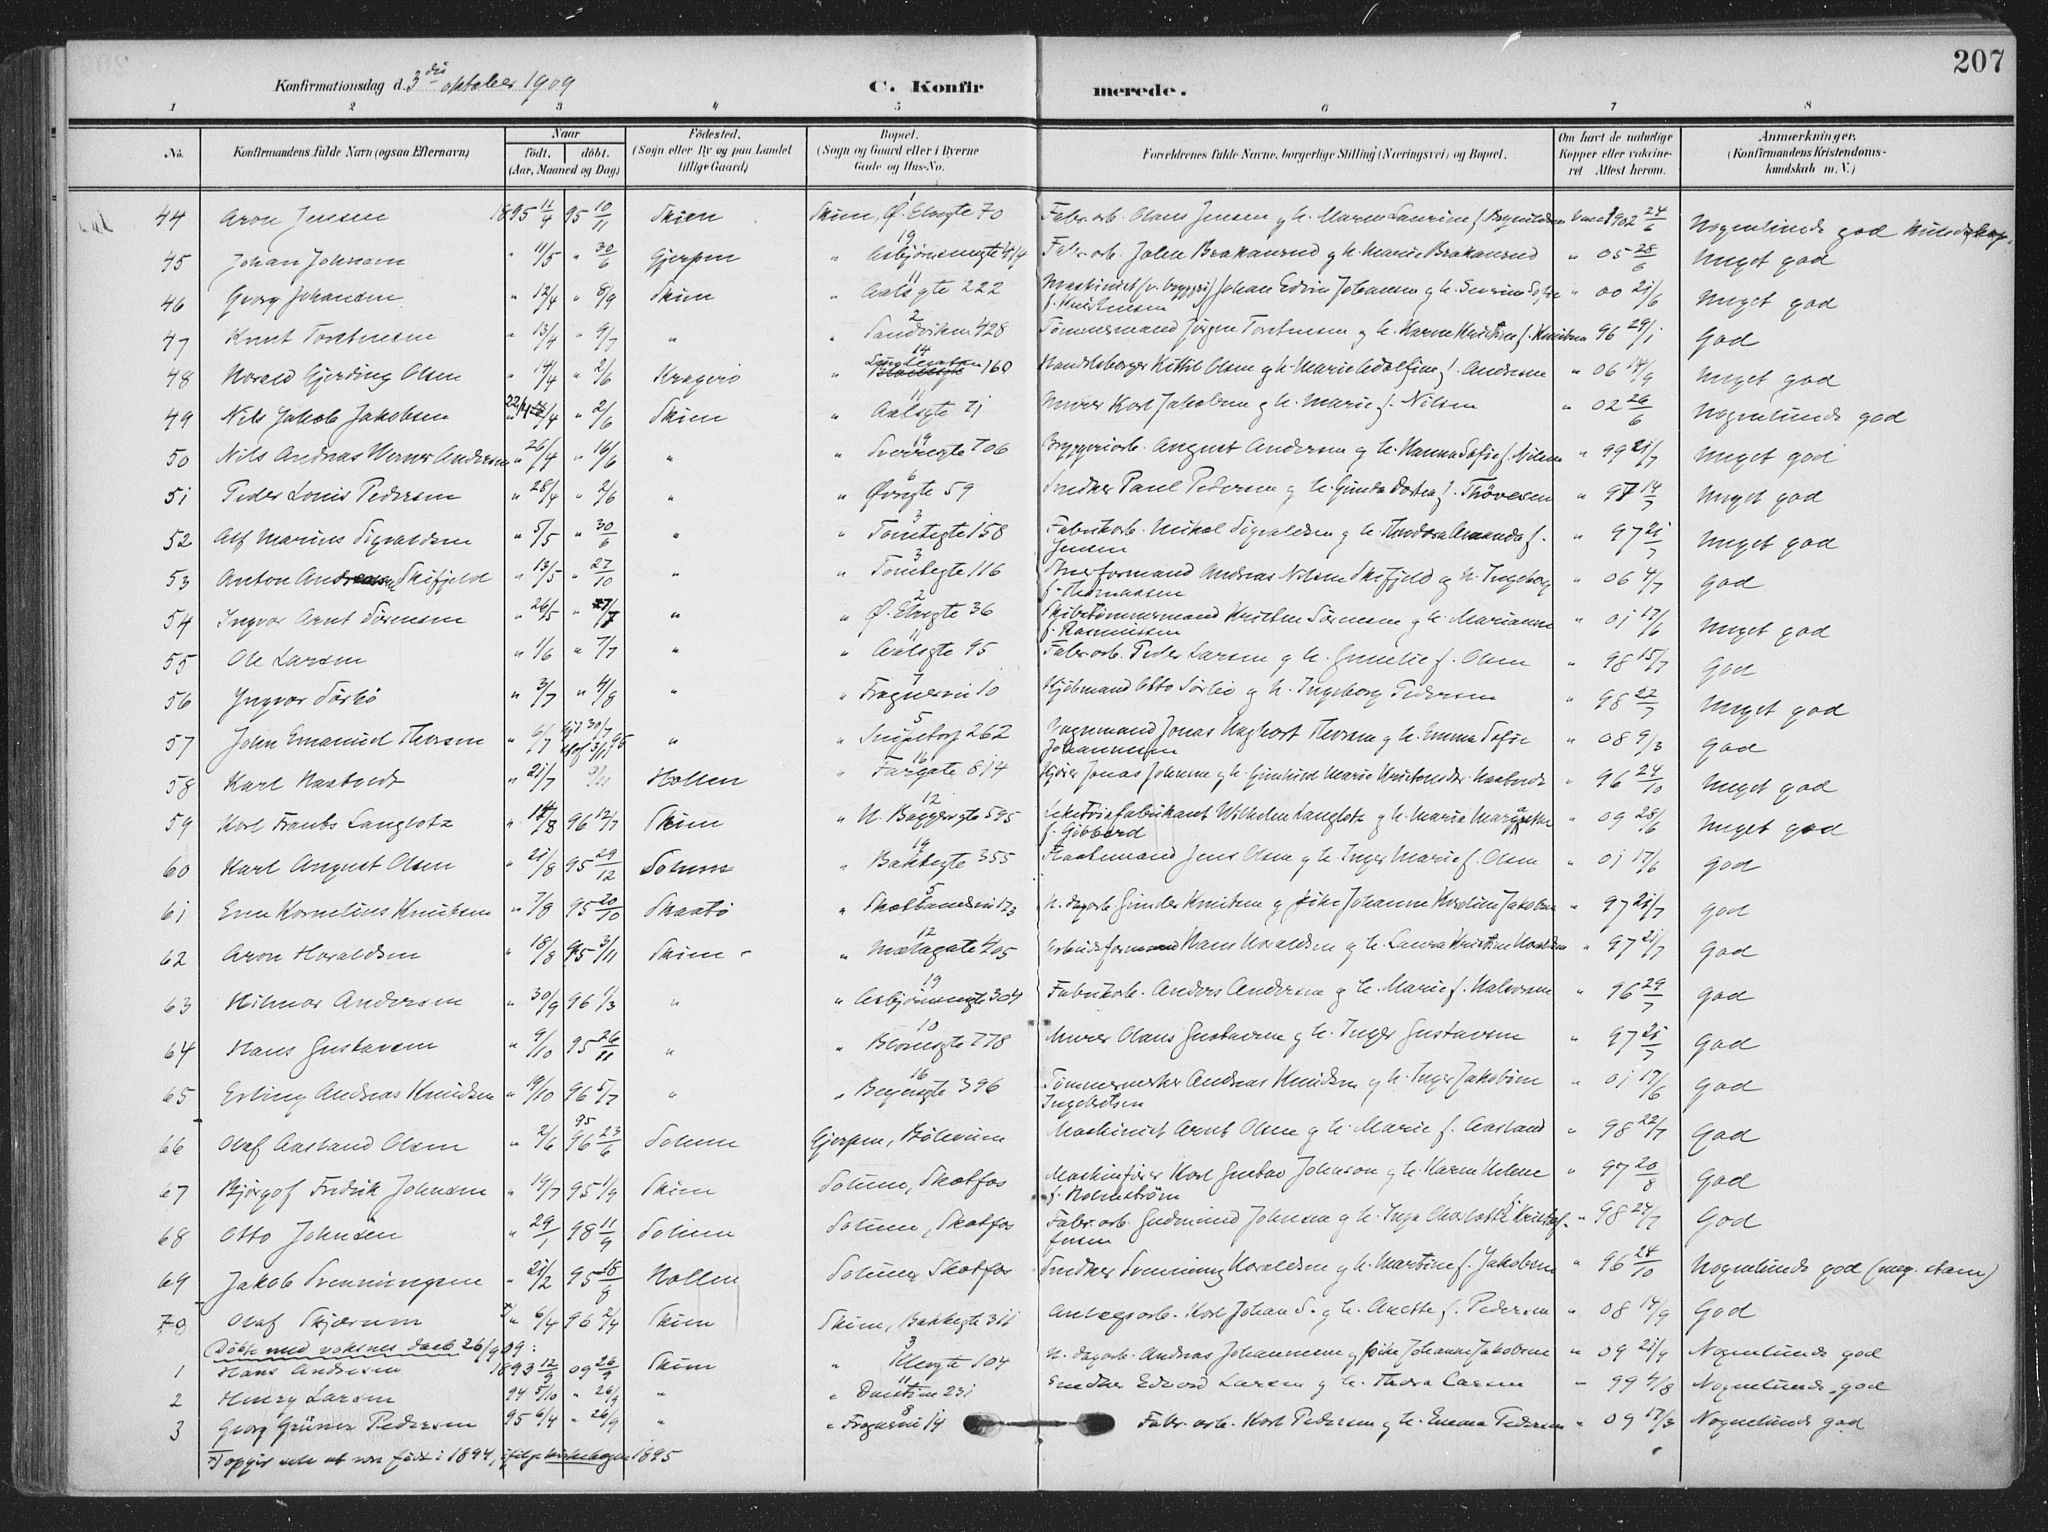 207
Konfirmationsdag d. 3die oktober 1909 C. Konfirmerede.
1 2 3 4 5 6 7 8
No. Konfirmandens fulde Navn (ogsaa Efternavn) Naar født. døbt. (Aar, Maaned og Dag) Födested. (Sogn eller By og paa Landet tillige Gaard) Bopæl. (Sogn og Gaard eller i Byerne Gade og Hus-No. Forældrenes fulde Navne, borgerlige Stilling (Næringsvei) og Bopæl. Om havt de naturlige Kopper eller vakcineret Attest herom. Anmærkninger. (Konfirmandens Kristendomskundskab m. V.)
44 Aron Jensen 1895 11/4 95 10/11 Skien Skien, Ø. Elvegte 70 Fabr. arb. Olaus Jensen og h. Maren Laurine f. 1902 24/6 Nogenlunde god
45 Johan Johnsen " 11/5 " 30/6 Gjerpen " Asbjørnsensgte 19 Fabr. arb. John og h. Marie " 05 28/6 Meget god
46 Georg Johansen " 12/4 " 8/9 Skien " Aalsgte 11 222 Maskinist (v. bryggeri) Johan Edvin Johansen og h. Severine Sofie f. Kristensen " 00 21/6 Meget god
47 Knut Torstensen " 13/4 " 9/7 " " Sandviken 2 428 Tømmermand Jørgen Torstensen og h. Karen Kristine f. Knudsen 96 29/1 God
48 Harald Gjerding Olsen " 14/4 " 2/6 Kragerø " 14 160 Handelsborger Kittil Olsen og h. Marie Adolfine f. Andersen " 06 14/9 Meget god
49 Nils Jakob Jakobsen 22/4 " 2/6 Skien " Aalsgte 11 71 Murer Karl Jakobsen og h. Marie f. Nilsen " 02 26/6 Nogenlunde god
50 Nils Andreas Werner Andersen " 26/4 " 16/6 " " Sverresgte 19 706 Bryggeriarb. August Andersen og h. Hanna Sofie f. Nilsen " 99 21/7 Meget god
51 Peder Louis Pedersen " 28/4 " 2/6 " " Øvregte 6 59 Snedker Paul Pedersen og h. Gunda Dortea f. " 97 14/7 Meget god
52 Alf Marius Sigvaldsen " 5/5 " 30/6 " " Tomtegte 3 158 Fabrikarb. Mikal Sigvaldsen og h. Amanda f. Jensen " 97 21/7 Meget god
53 Anton Andreas Skifjeld " 13/5 " 27/10 " " Tomtegte 3 116 Andreas Nilsen Skifjeld og h. Ingeborg f. Thomassen " 06 4/7 God
54 Ingvar Arnt Sørensen " 26/5 " 27/7 " " Ø. Elvegte 2 36 Skibstømmermand Kristen Sørensen og h. Marianne f. Rasmussen " 01 17/6 Meget god
55 Ole Larsen " 1/6 " 7/7 " " Aalsgte 11 95 Fabr. arb. Peder Larsen og h. f. Olsen " 98 15/7 God
56 Yngvar Sørbø " 3/7 " 4/8 " " 7 10 Kjøbmand Otto Sørbø og h. Ingeborg Pedersen " 98 22/7 Meget god
57 John Emanuel Thorsen " 6/7 30/7 " " Snipetorp 5 262 Vognmand Jonas Thorsen og h. Emma Sofie Johannesen " 08 9/3 God
58 Karl " 21/7 Hollen " Torgate 16 814 Kjører Jonas Johnsen og h. Gunhild Marie " 96 24/10 Meget god
59 Karl Frants Langlotz " 14/8 96 12/7 Skien " N. Baggersgte 12 595 Wilhelm Langlotz og h. Maria f. " 09 28/6 Meget god
60 Karl August Olsen " 21/8 95 29/12 Solum " Bakkegte 19 355 Jens Olsen og h. Inger Marie f. Olsen " 01 17/6 God
61 Even Kornelius Knudsen " 7/8 95 20/10 Skaatø " 5 N. dagarb. Gunder Knudsen og pike Johanne Karoline Jakobsen " 97 21/7 God
62 Aron Haraldsen " 18/8 95 3/11 Skien " Mælagate 12 405 Arbeidsformand Hans Haraldsen og h. Laura Kristine " 97 21/7 God
63 Hilmar Andersen " 30/9 96 1/3 " " Asbjørnsensgte 19 304 Fabrikarb. Anders Andersen og h. Marie f. Halvorsen " 96 29/7 God
64 Hans Gustavsen " 9/10 95 26/11 " " 10 778 Murer Olaus Gustavsen og h. Inger Gustavsen " 97 21/7 God
65 Erling Andreas Knudsen " 19/10 96 5/7 " " 16 396 Tømmermester Andreas Knudsen og h. Inger Jakobine Ingebretsen " 01 17/6 God
66 Olaf Aasland Olsen " 2/6 95 96 23/6 Solum Gjerpen, Bølevein Maskinist Arnt Olsen og h. Marie f. Aasland " 98 22/7 God
67 Bjørgof Fredrik Johnsen " 19/7 95 1/9 Skien Solum, Skotfos Maskinfører Karl Gustav Johnson og h. Karen Helene f. Holmstrøm " 97 20/8 God
68 Otto Johnsen " 29/1 98 11/9 Solum Solum, Skotfos Fabr. arb. Gudmund Johnsen og h. Inga Charlotte Jensen " 98 24/7 God
69 Jakob Svenningsen " 21/2 95 18/8 Hollen Solum, Skotfos Snedker Svenning Haraldsen og h. Martine f. Jakobsen " 96 24/10 Nogenlunde god (meg. stam)
70 Olaf Skjærum " 6/4 96 2/4 Skien Skien, Bakkegte 311 Anlægsarb. Karl Johan S. og h. Anette f. Pedersen " 08 14/9 God
Døbte med voksnes daab 26/9 09:
1 Hans Andresen 1893 12/9 09 26/9 Skien " 3 104 N. dagarb. Andreas Johannesen og pike Johanne Jakobsen " 09 21/9 Nogenlunde god
2 Henry Larsen 94 5/10 " 26/9 " " 11 231 Snedker Edvard Larsen og h. Thora Larsen " 99 4/8 Nogenlunde god
3 Georg Grüner Pedersen 95 6/4 " 26/9 " " 8 14 Fabr. arb. Karl Pedersen og h. Emma Pedersen " 09 17/3 Nogenlunde god
opgir selv at være født i 1894, ifølge kirkebogen 1895